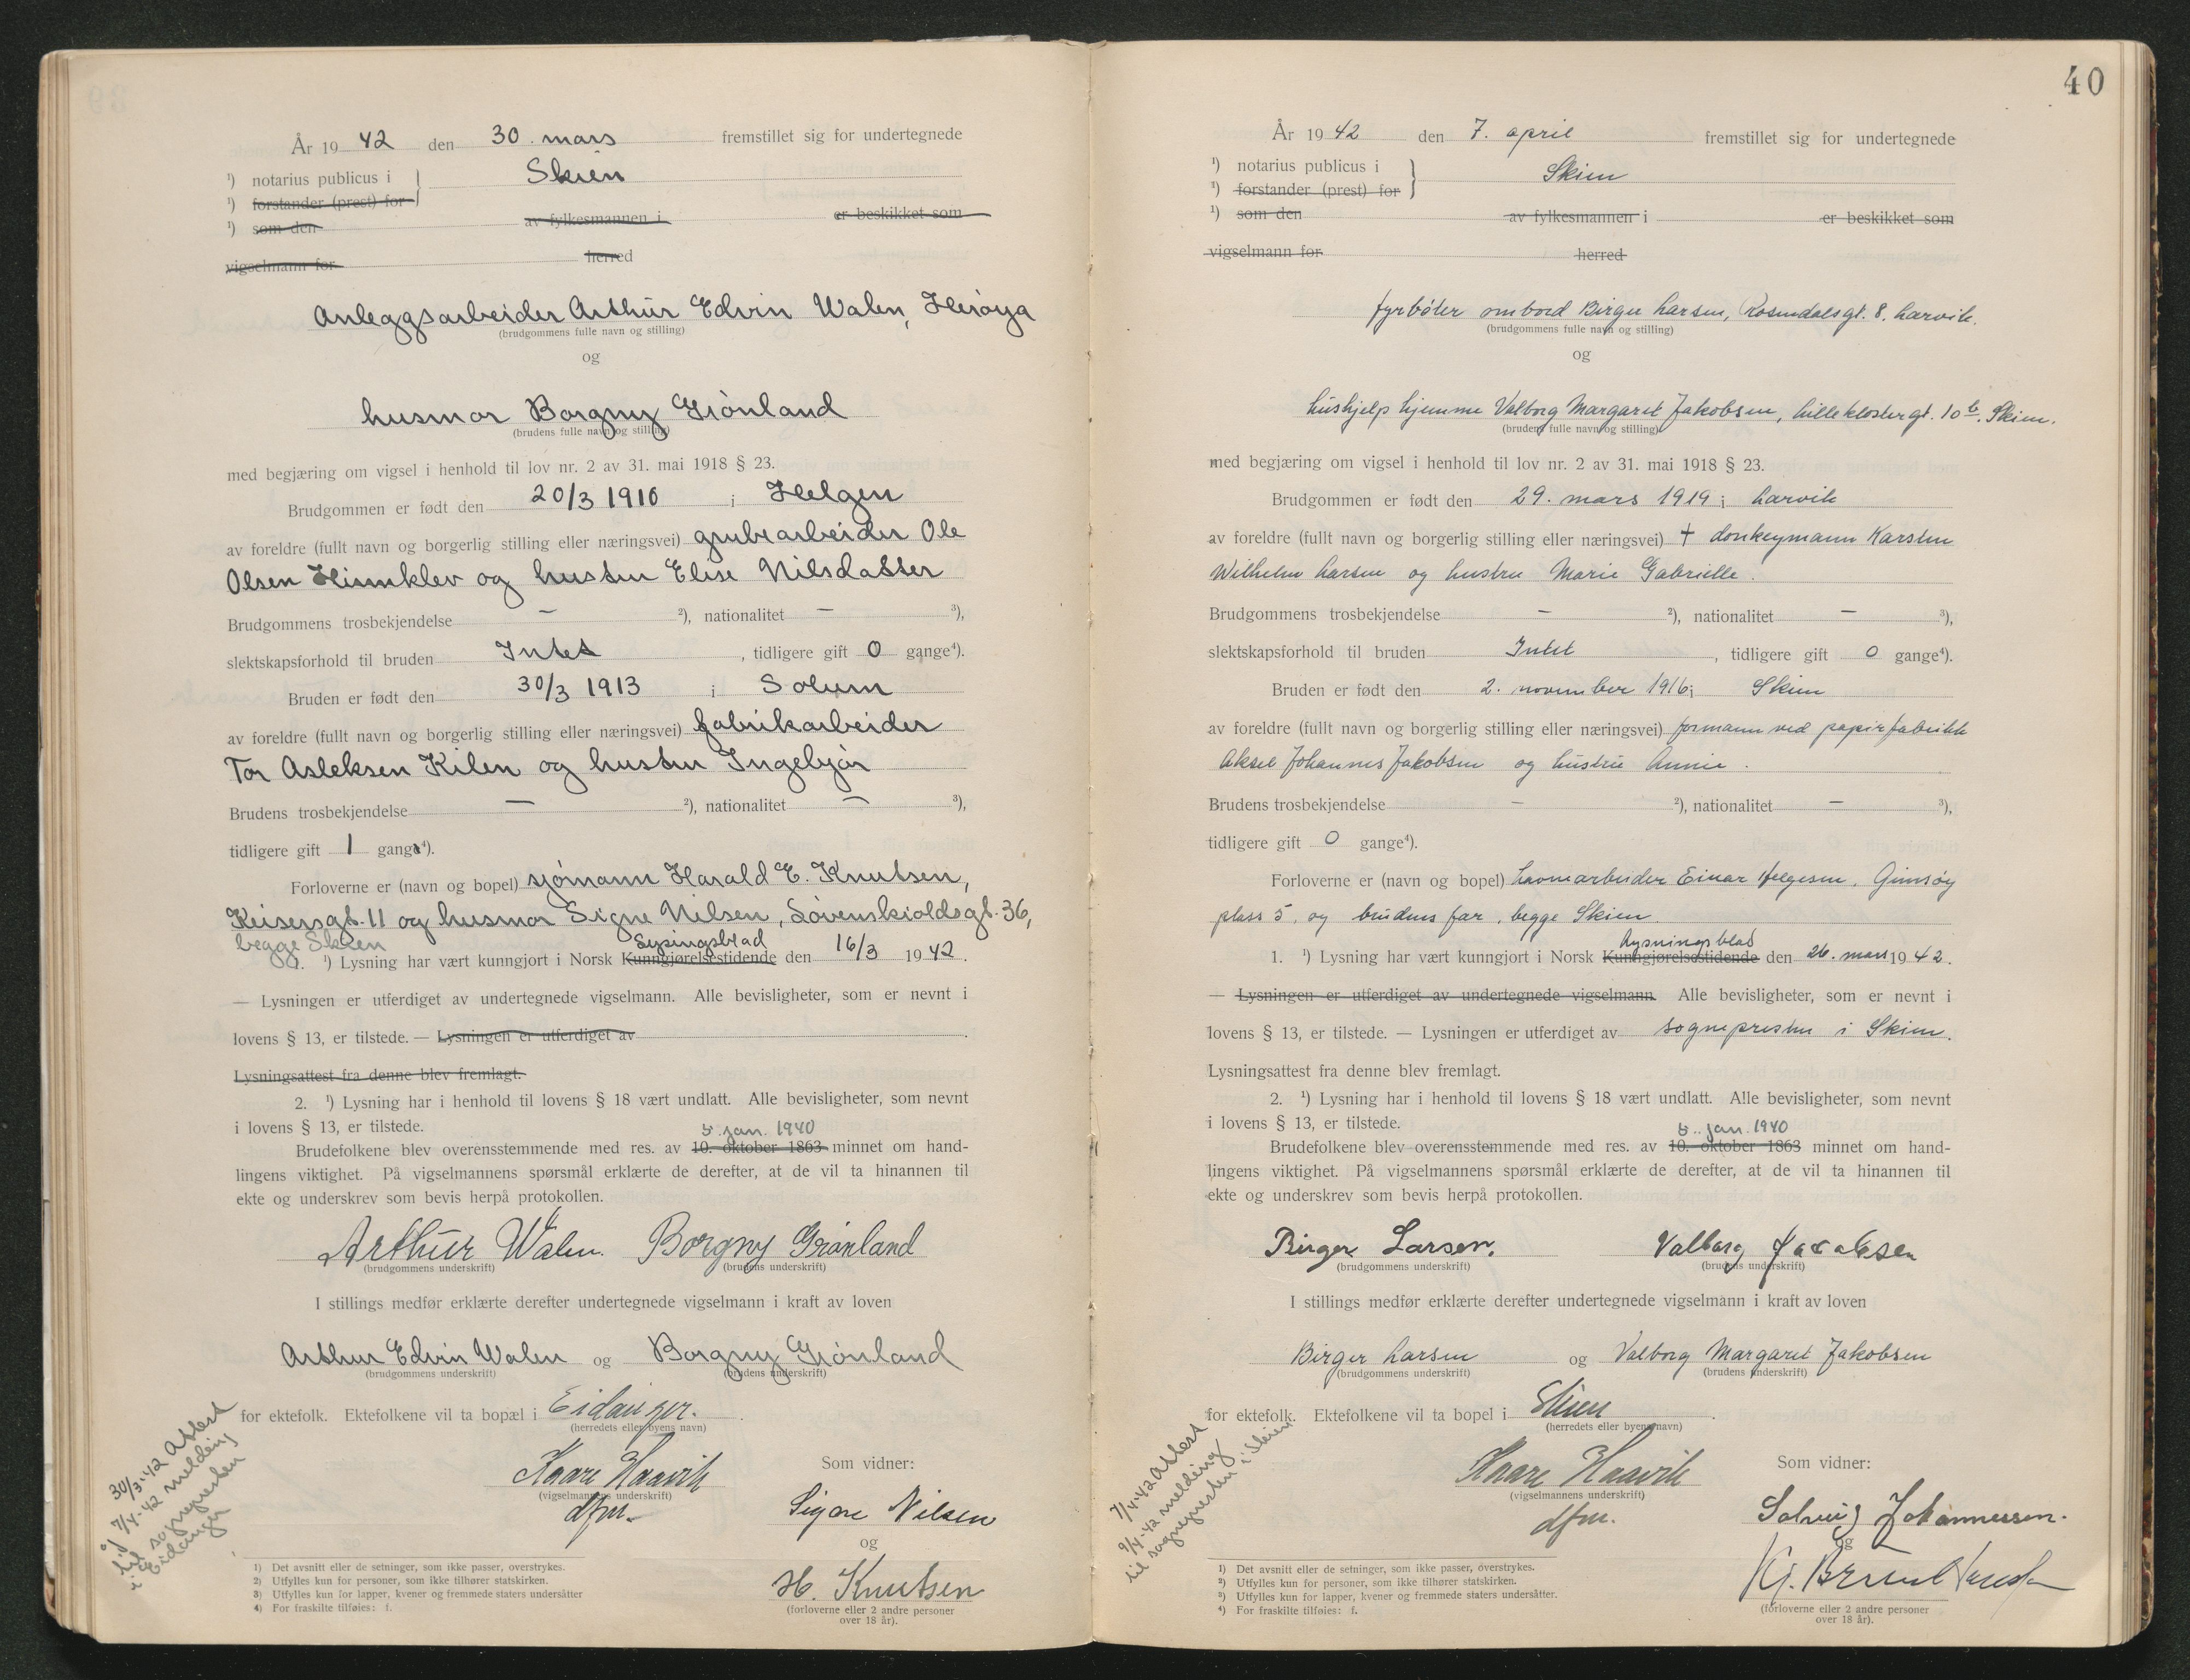 År 1942 den 30. mars fremstillet sig for undertegnede
¹) notarius publicus i Skien
¹) forstander (prest) for
¹) som den av fylkesmannen i er beskikket som
vigselmann for herred
Anleggsarbeider Arthur Edvin Walen, Herøya
(brudgommens fulle navn og stilling)
og
husmor Borgny Grönland
(brudens fulle navn og stilling)
med begjæring om vigsel i henhold til lov nr. 2 av 31. mai 1918 § 23.
Brudgommen er født den 20/3 1910 i Helgen
av foreldre (fullt navn og borgerlig stilling eller næringsvei) grubearbeider Ole
Olsen Himmklev og hustru Elise Nilsdatter
Brudgommens trosbekjendelse — ²), nationalitet — ³),
slektskapsforhold til bruden Intet, tidligere gift 0 gange⁴).
Bruden er født den 30/3 1913 i Solum
av foreldre (fullt navn og borgerlig stilling eller næringsvei) fabrikarbeider
Tor Asleksen Kilen og hustru Ingebjör
Brudens trosbekjendelse — ²), nationalitet — ³),
tidligere gift 1 gang⁴).
Forloverne er (navn og bopel) sjömann Harald E. Knutsen,
Keisersgt. 11 og husmor Signe Nilsen, Lövenskioldsgt. 36,
begge Skien
Lysingsblad
1. ¹) Lysning har vært kunngjort i Norsk Kunngjørelsestidende den 16/3 1942.
— Lysningen er utferdiget av undertegnede vigselmann. Alle bevisligheter, som er nevnt i
lovens § 13, er tilstede. — Lysningen er utferdiget av .
Lysningsattest fra denne blev fremlagt.
2. ¹) Lysning har i henhold til lovens § 18 vært undlatt. Alle bevisligheter, som nevnt
i lovens § 13, er tilstede.
5. jan. 1940
Brudefolkene blev overensstemmende med res. av 10. oktober 1863 minnet om hand-
lingens viktighet. På vigselmannens spørsmål erklærte de derefter, at de vil ta hinannen til
ekte og underskrev som bevis herpå protokollen.
Arthur Walen. Borgny Grönland
(brudgommens underskrift) (brudens underskrift)
I stillings medfør erklærte derefter undertegnede vigselmann i kraft av loven
Arthur Edvin Walen og Borgny Grönland
(brudgommens underskrift) (brudens underskrift)
for ektefolk. Ektefolkene vil ta bopæl i Eidanger.
(herredets eller byens navn)
Kaare Haavik
(vigselmannens underskrift)
dfm.
Som vidner:
Signe Nilsen
og
H. Knutsen
(forloverne eller 2 andre personer
over 18 år).
30/3-42 Attest
og 7/4-42 melding
til sognepresten
i Eidanger
1) Det avsnitt eller de setninger, som ikke passer, overstrykes.
2) Utfylles kun for personer, som ikke tilhører statskirken.
3) Utfylles kun for lapper, kvener og fremmede staters undersåtter
4) For fraskilte tilføies: f.
40
År 1942 den 7. april fremstillet sig for undertegnede
¹) notarius publicus i Skien
¹) forstander (prest) for
¹) som den av fylkesmannen i er beskikket som
vigselmann for herred
fyrbøter ombord Birger Larsen, Rosendalsgt. 8, Larvik.
(brudgommens fulle navn og stilling)
og
hushjelp hjemme Valborg Margaret Jakobsen, Lilleklostergt. 10 b, Skien.
(brudens fulle navn og stilling)
med begjæring om vigsel i henhold til lov nr. 2 av 31. mai 1918 § 23.
Brudgommen er født den 29. mars 1919 i Larvik
av foreldre (fullt navn og borgerlig stilling eller næringsvei) † donkeymann Karsten
Wilhelm Larsen og hustru Marie Gabrielle.
Brudgommens trosbekjendelse — ²), nationalitet — ³),
slektskapsforhold til bruden Intet, tidligere gift 0 gange⁴).
Bruden er født den 2. november 1916 i Skien
av foreldre (fullt navn og borgerlig stilling eller næringsvei) formann ved papirfabrikk
Aksel Johannes Jakobsen og hustru Annie.
Brudens trosbekjendelse — ²), nationalitet — ³),
tidligere gift 0 gange⁴).
Forloverne er (navn og bopel) havnearbeider Einar Helgesen, Gimsøy
plass 5, og brudens far, begge Skien.
Lysningsblad
1. ¹) Lysning har vært kunngjort i Norsk Kunngjørelsestidende den 26. mars 1942.
— Lysningen er utferdiget av undertegnede vigselmann. Alle bevisligheter, som er nevnt i
lovens § 13, er tilstede. — Lysningen er utferdiget av sognepresten i Skien.
Lysningsattest fra denne blev fremlagt.
2. ¹) Lysning har i henhold til lovens § 18 vært undlatt. Alle bevisligheter, som nevnt
i lovens § 13, er tilstede.
5. jan. 1940
Brudefolkene blev overensstemmende med res. av 10. oktober 1863 minnet om hand-
lingens viktighet. På vigselmannens spørsmål erklærte de derefter, at de vil ta hinannen til
ekte og underskrev som bevis herpå protokollen.
Birger Larsen. Valborg Jakobsen
(brudgommens underskrift) (brudens underskrift)
I stillings medfør erklærte derefter undertegnede vigselmann i kraft av loven
Birger Larsen og Valborg Margaret Jakobsen
(brudgommens underskrift) (brudens underskrift)
for ektefolk. Ektefolkene vil ta bopel i Skien.
(herredets eller byens navn)
Kaare Haavik
(vigselmannens underskrift)
dfm.
Som vidner:
Solveig Johannessen.
og
(forloverne eller 2 andre personer
over 18 år).
7/4-42 Attest
9/4-42 melding
til sognepresten i Skien
¹) Det avsnitt eller de setninger, som ikke passer, overstrykes.
²) Utfylles kun for personer, som ikke tilhører statskirken.
³) Utfylles kun for lapper, kvener og fremmede staters undersåtter.
⁴) For fraskilte tilføies: f.